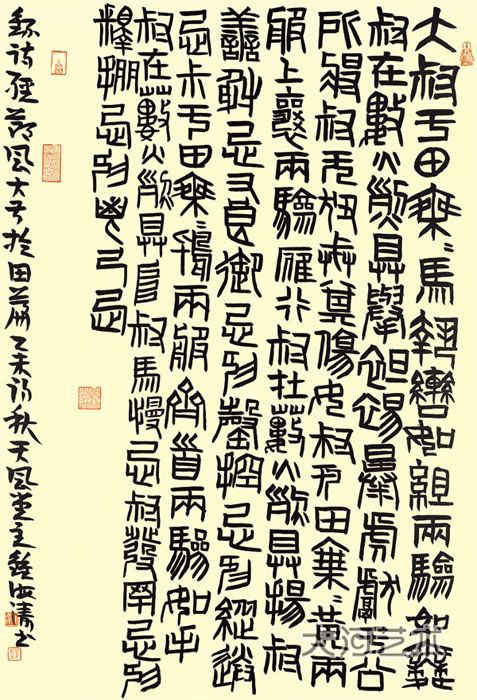 大叔于田乘〻馬執轡如組兩驂如舞
叔在藪火烈具舉襢裼暴虎獻于公
所將叔无狃戒其傷女叔于田乘〻黃兩
服上襄兩驂雁行叔在藪火烈具揚叔
善射忌又良御忌抑磬控忌抑縱送
忌叔于田乘〻鴇兩服齊首兩驂如手
叔在藪火烈具阜叔馬慢忌叔發罕忌抑
釋掤忌抑鬯弓忌
錄詩經鄭風大叔於田篇乙未初秋天風堂主鍾海濤書
大河艺术